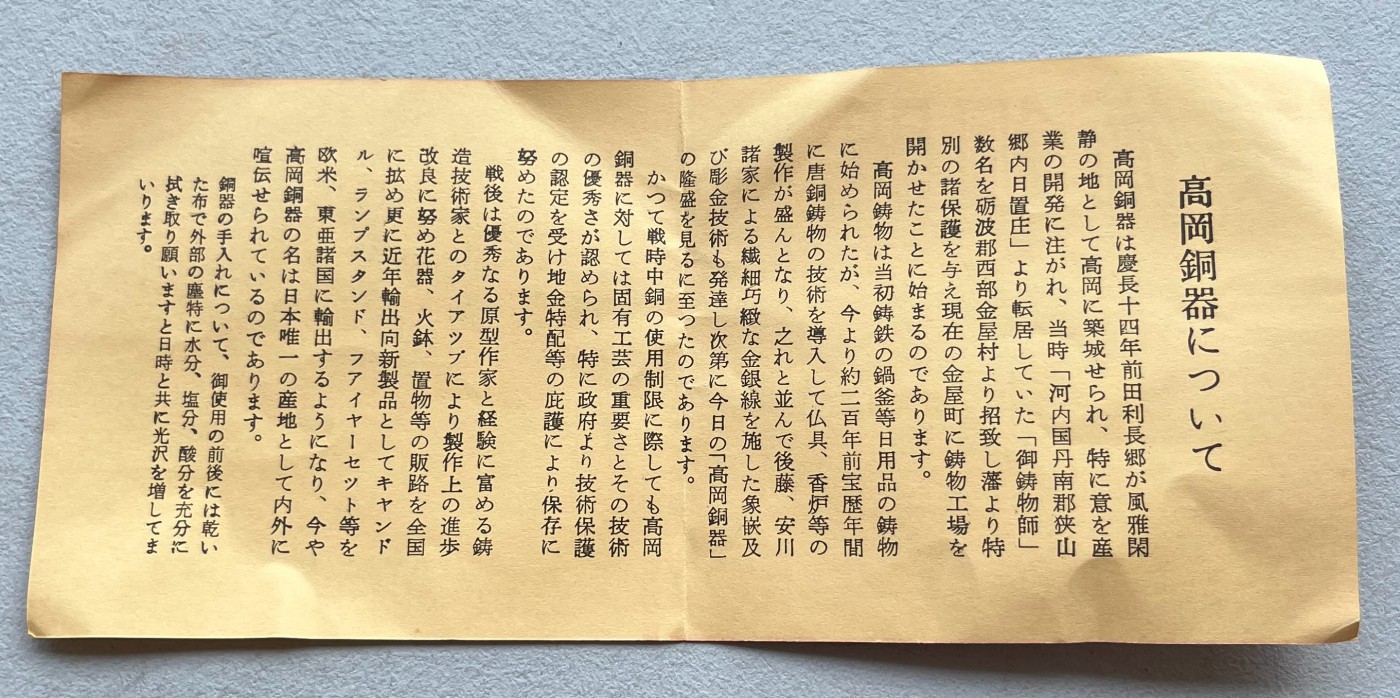 高岡銅器について
高岡銅器は慶長十四年前田利長郷が風雅閑
静の地として高岡に築城せられ、特に意を産
業の開発に注がれ、当時「河内国丹南郡狭山
郷内日置庄」より転居していた「御鋳物師」
数名を砺波郡西部金屋村より招致し藩より特
別の諸保護を与え現在の金屋町に鋳物工場を
開かせたことに始まるのであります。
高岡鋳物は当初鋳鉄の鍋釜等日用品の鋳物
に始められたが、今より約二百年前宝歴年間
に唐銅鋳物の技術を導入して仏具、香炉等の
製作が盛んとなり、之れと並んで後藤、安川
諸家による繊細巧緻な金銀線を施した象嵌及
び彫金技術も発達し次第に今日の「高岡銅器」
の隆盛を見るに至つたのであります。
かつて戦時中銅の使用制限に際しても高岡
銅器に対しては固有工芸の重要さとその技術
の優秀さが認められ、特に政府より技術保護
の認定を受け地金特配等の庇護により保存に
努めたのであります。
戦後は優秀なる原型作家と経験に富める鋳
造技術家とのタイアツプにより製作上の進歩
改良に努め花器、火鉢、置物等の販路を全国
に拡め更に近年輸出向新製品としてキヤンド
ル、ランプスタンド、フアイヤーセツト等を
欧米、東亜諸国に輸出するようになり、今や
高岡銅器の名は日本唯一の産地として内外に
喧伝せられているのであります。
銅器の手入れについて、御使用の前後には乾い
た布で外部の塵特に水分、塩分、酸分を充分に
拭き取り願いますと日時と共に光沢を増してま
いります。